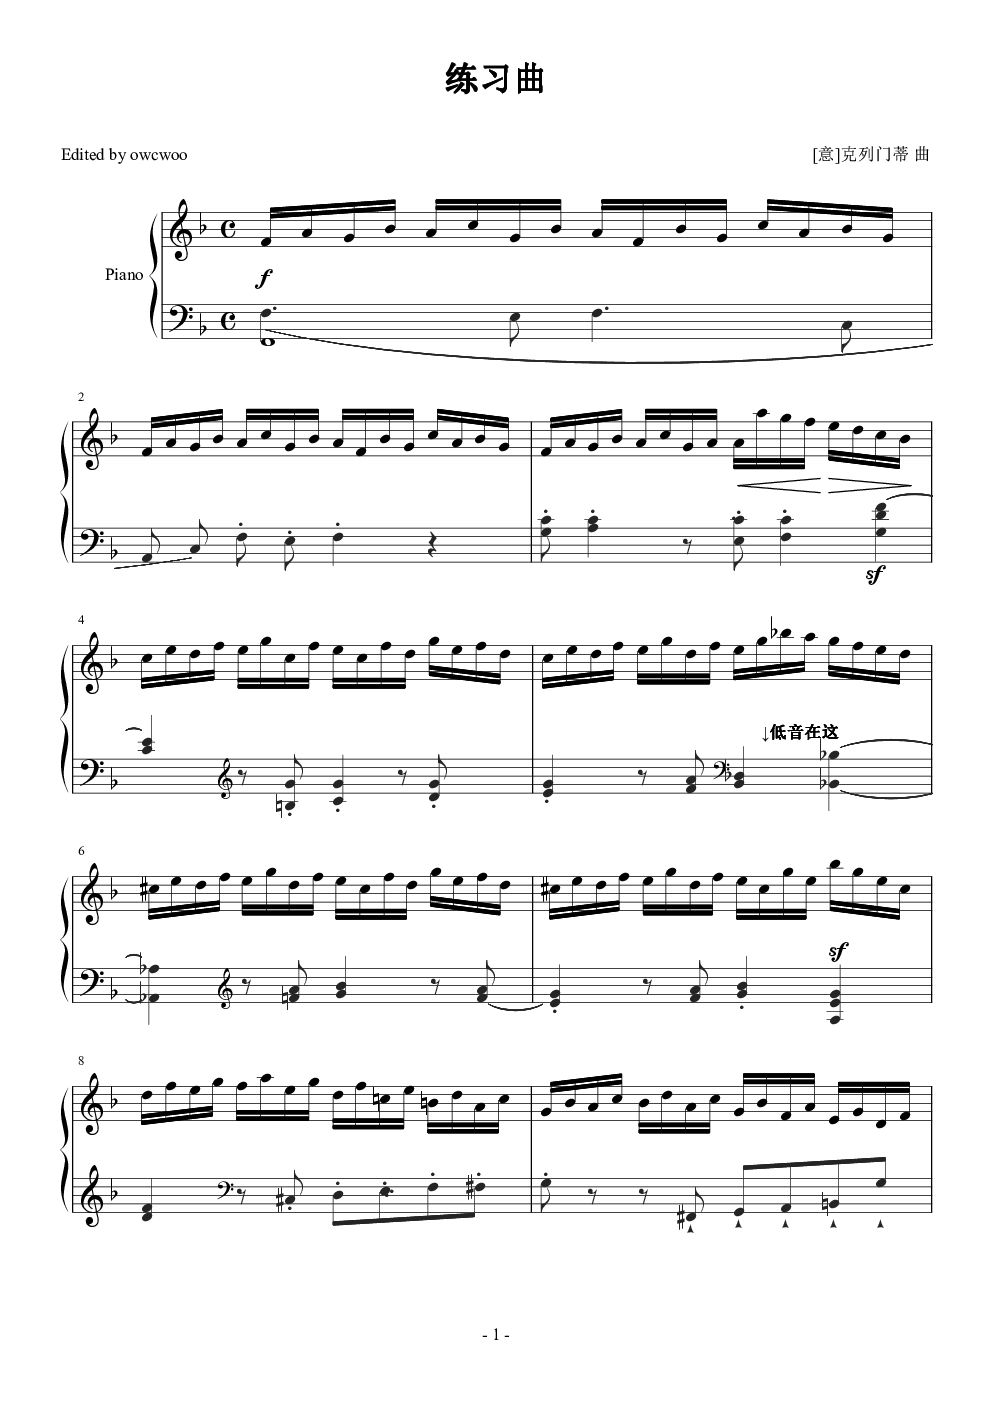 练习曲
Edited by owcwoo
[意]克列门蒂 曲
Piano
f
2
sf
4
↓低音在这
6
sf
8
- 1 -